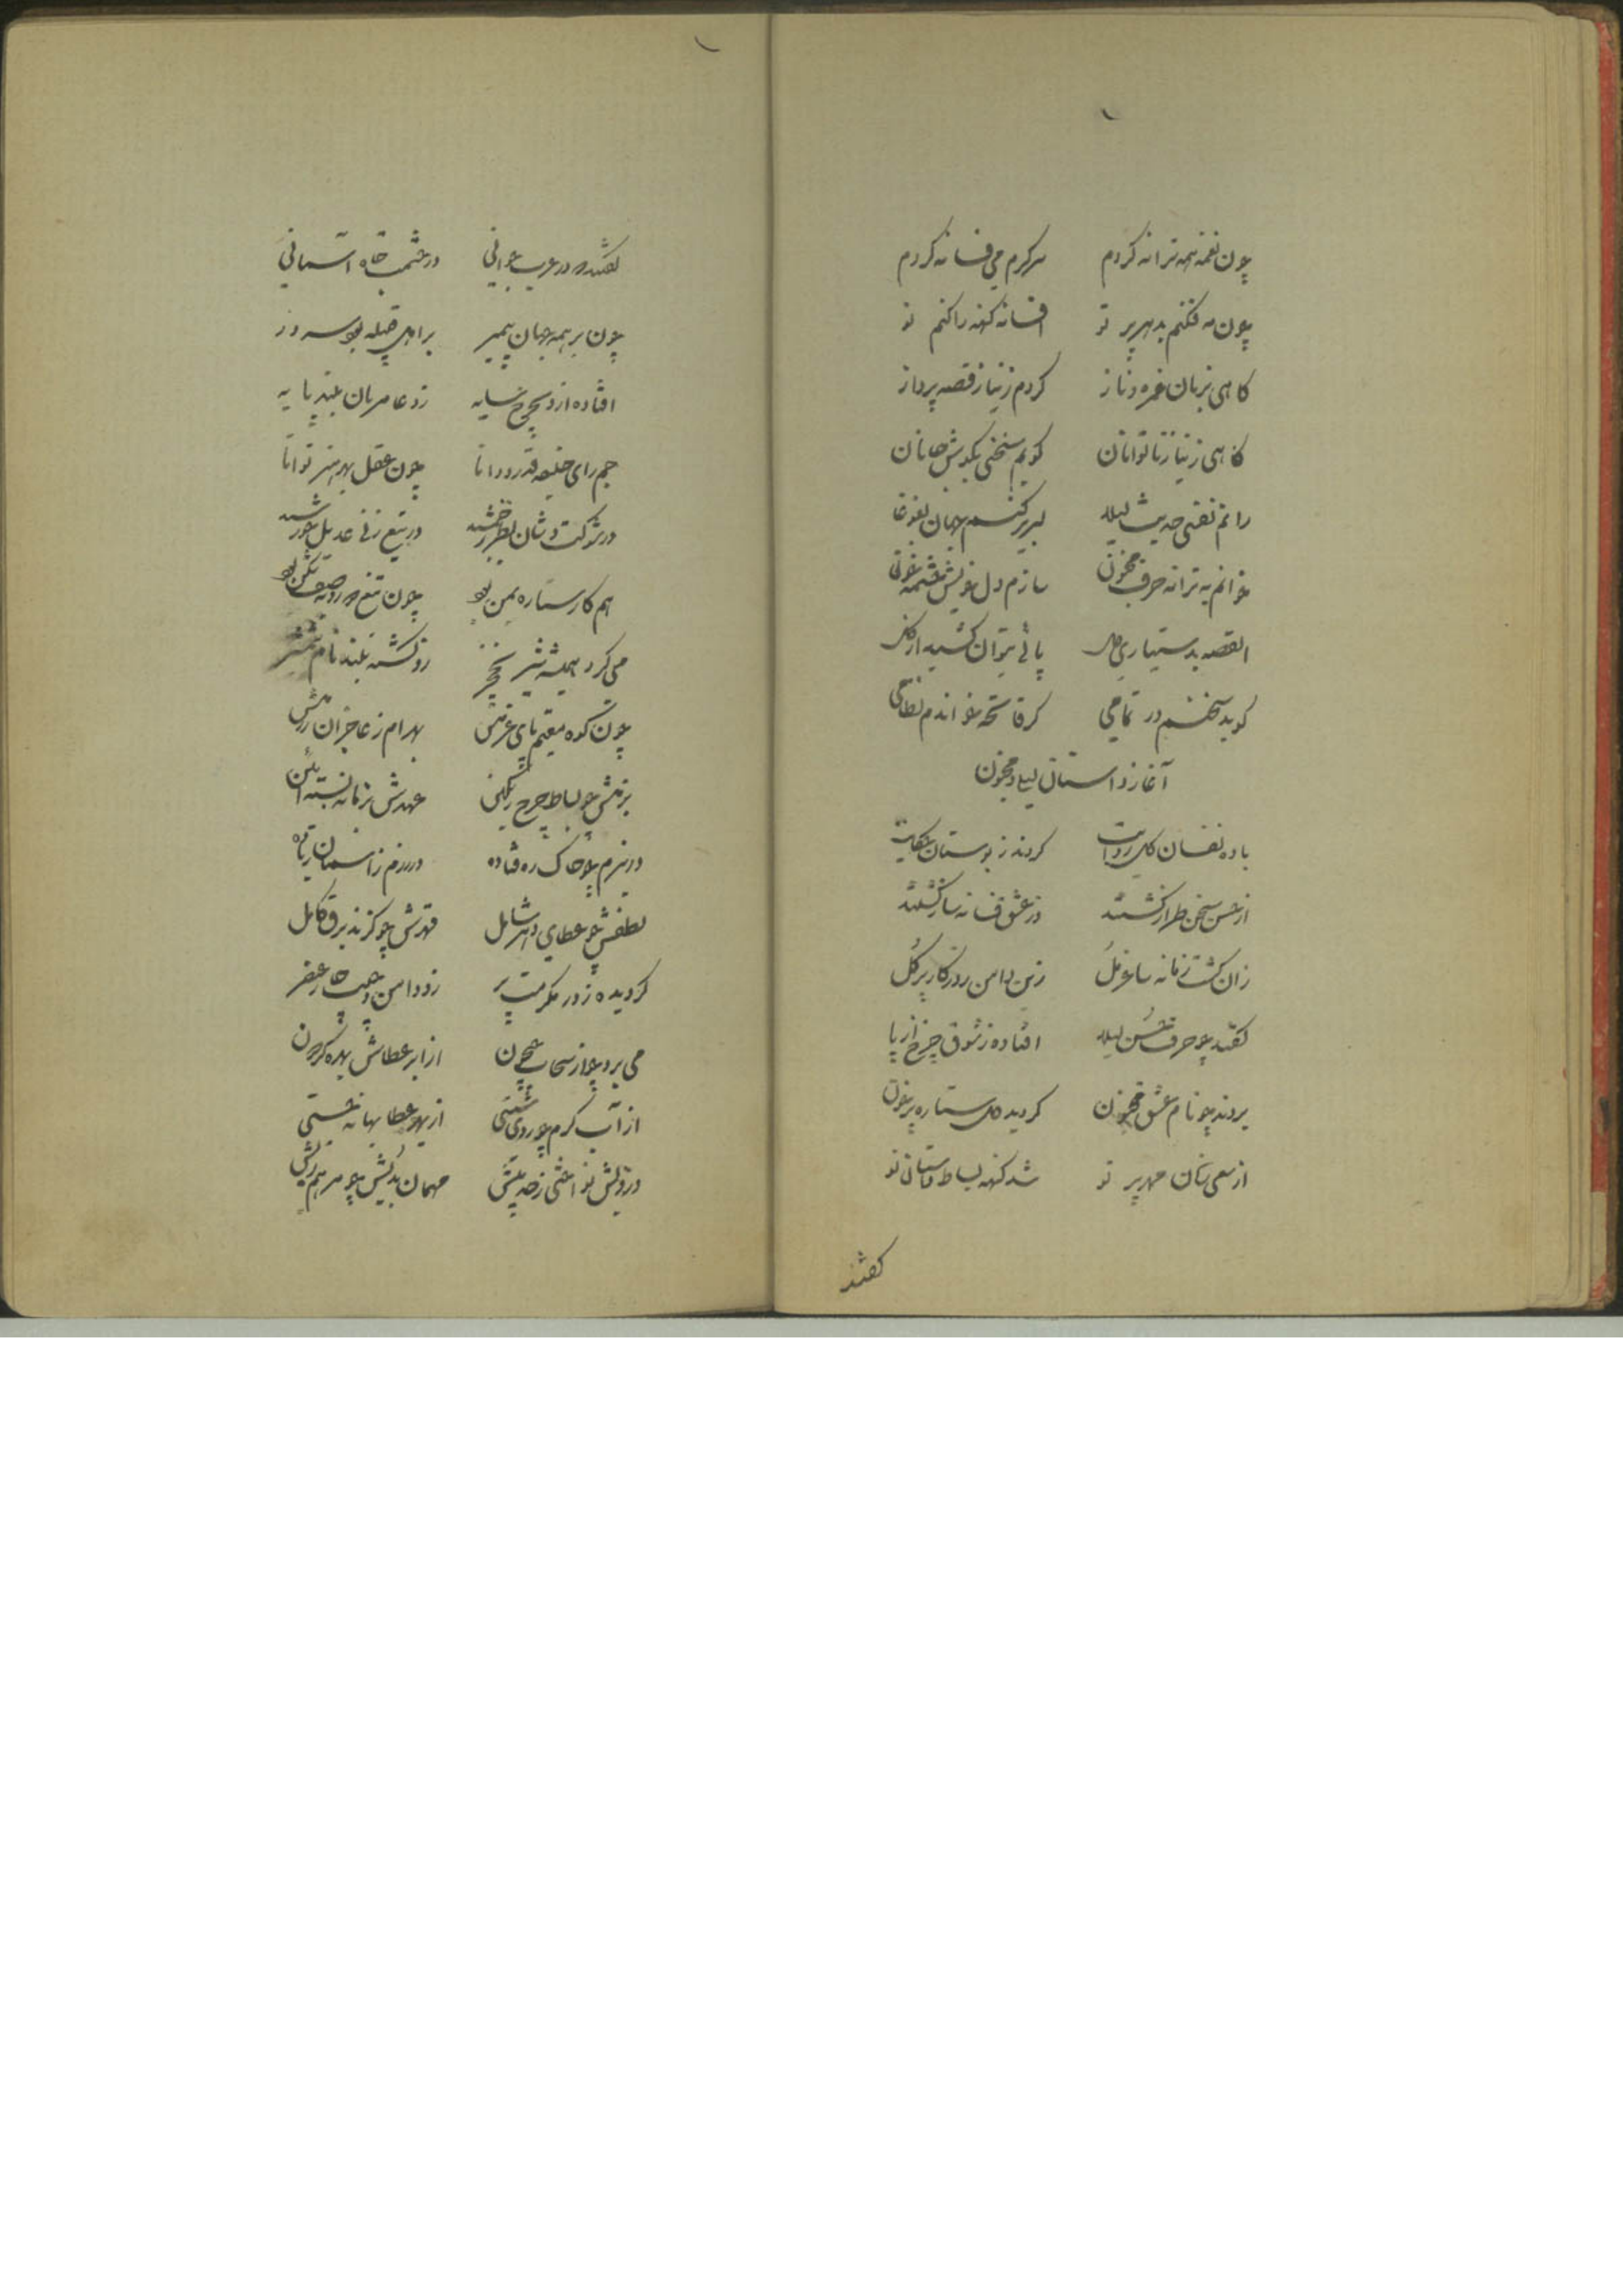 چون نغمه همه ترانه کردم سرگرم می فسانه کردم
چون مه فکنم بدهر پرتو افسانه کهنه را کنم نو
کاهی بزبان غمزه و ناز کردم زنیاز قصه پرداز
کاهی زنیاز ناتوانان کویم سخنی بکوش جانان
رانم نفسی حدیث لیلا لبریز کنم جهان بغوغا
خوانم به ترانه حرف مجنون سازم دل خویش چشمه خون
القصه بدستیاری پائی بتوان کشید از
کوید سخنم در تمامی کر فاتحه خواندم نظامی
آغاز داستان لیلا و مجنون
باده نفسان کل روایت کردند ز بوستان حکایت
از حسن سخن طراز کشتند در عشق فسانه ساز کشتند
زان کشت زمانه ساغر مل زین دامن روزکار پر کل
کفتند چو حرف حسن لیلا افتاده ز شوق چرخ از پا
بردند چو نام عشق مجنون کردید دل ستاره پر خون
از سعی مهر پرتو شد کهنه بساط نو
کفتند
کفتند که در عرب جوانی در حشمت و جاه آسمانی
چون بر همه جهان پیمبر بر اهل قبیله بود سرور
افتاده از و بچرخ سایه زو عامریان بلند پایه
جم رای خلیفه قدر و دانا چون عقل بهر هنر توانا
در شوکت و شان نظیر جمشید در تیغ زنی عدیل خورشید
هم کار ستاره یمن بود چون تیغ صف شکن بود
می کرد همیشه شیر نخجیر زو کشته بلند نام شمشیر
چون کوه مقیم پای عزمش بهرام ز عاجزان رزمش
بزمش چو بساط چرخ رنگین عهدش بزمانه بسته آئین
در بزم چو خاک ره فتاده در رزم ز آسمان زیاده
لطفش چو عطای دهر شامل قهرش چو کزند برق کامل
کردیده ز در مکرمت پر زو دامن و جیب چار عنصر
می برد چو از سحاب جیحون از ابر عطاش بهره کردون
از آب کرم چو روی شستی از بهر عطا بهانه جستی
درویش نواختی ز حد بیش مهمان بدیش چو مرهم ریش